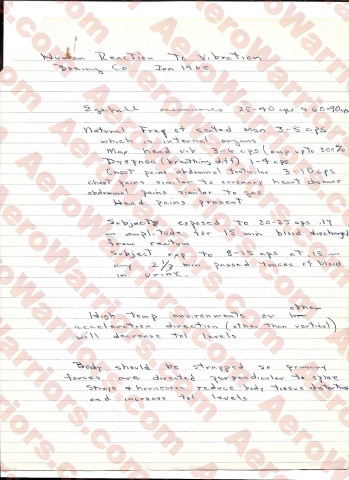 Human Reaction To Vibration
Boeing Co Jan 1960
Eyeball resonances 25-40 cps & 60-90 cps
Natural Freq of seated man 3-5 cps
which is internal organs
Max head vib 3-6 cps (amp up to 300%
Dyspnea (breathing diff) 1-4 cps
Chest pains abdominal testicular 3-10 cps
chest pains similar to coronary heart disease
abdominal pains similar to gas
Head pains present
Subjects exposed to 20-25 cps .17
in amplitude for 15 min blood discharged
from rectum
Subject exp to 8-15 cps at .15 in
amp 2 1/3 min passed traces of blood
in urine.
High temp environments or other
acceleration direction (other than vertical)
will decrease tol levels
Body should be strapped so primary
forces are directed perpendicular to spine
Straps & harnesses reduce body tissue distortion
and increase tol levels
AeroWarriors.com